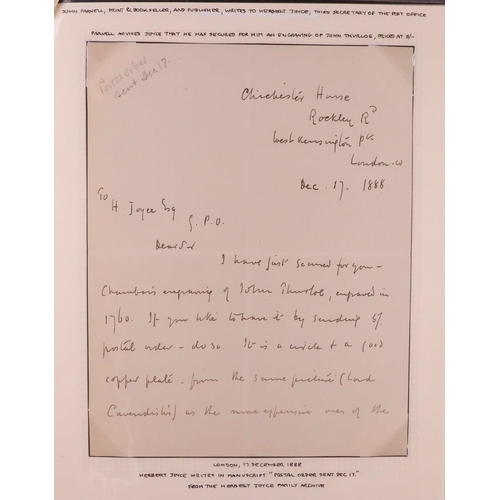 JOHN FARWELL, PRINT & BOOKSELLER, AND PUBLISHER, WRITES TO HERBERT JOYCE, THIRD SECRETARY OF THE POST OFFICE
FARWELL ADVISES JOYCE THAT HE HAS SECURED FOR HIM AN ENGRAVING OF JOHN THURLOE, PRICED AT 5/-
Postal order
sent Dec 17.
Chichester House
Rockley Rd
West Kensington Pk
London. W
Dec. 17. 1888
To
H. Joyce Esq
G. P. O.
Dear Sir
I have just secured for you -
Chambars engraving of John Thurloe, engraved in
1760. If you like to have it by sending 5/.
postal order - do so. It is a circle & a good
copper plate - from the same picture (Lord
Cavendish's) as the more expensive ones of the
LONDON, 17 DECEMBER 1888
HERBERT JOYCE WRITES IN MANUSCRIPT "POSTAL ORDER SENT DEC 17."
FROM THE HERBERT JOYCE FAMILY ARCHIVE